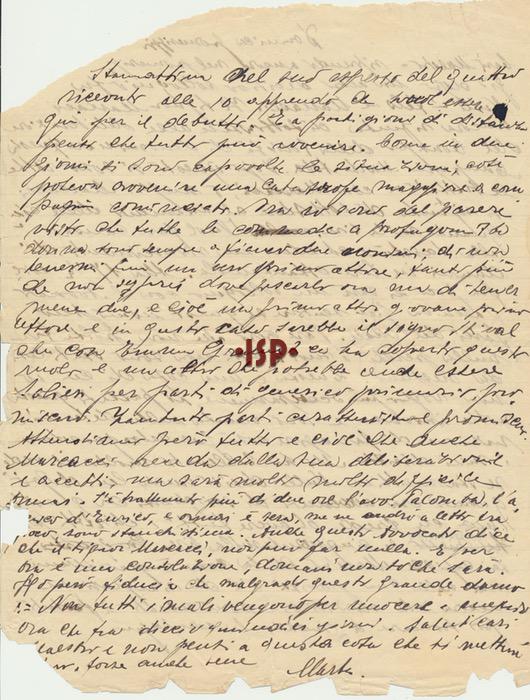 Stamattina nel suo espresso del quattro
ricevuto alle 10 apprendo che vuol essere
qui per il debutto. E a pochi giorni di distanza
penso che tutto può avvenire. Come in due
giorni si sono capovolte le situazioni, così
poteva avvenire una catastrofe maggiore a com
pagnia cominciata. Ma io sono del parere
visto che tutte le commedie a protagonista
donna sono sempre a fianco due uomini, di non
tenersi più un vero primo attore, tanto più
che non saprei dove pescarlo ora ma di tener
mene due, e cioè un primo attor giovane primo
attore e in questo caso sarebbe il signor Stival
che con Emma Gramatica ha coperto questo
ruolo e un altro che potrebbe anche essere
Solieri per parti di generico primario, pro
miscuo. Zambuto parti caratteristiche promiscue.
Attendiamo però tutto e cioè che anche
Marcacci receda dalla sua deliberazione
e accetti ma sarà molto molto difficile
ormai. S'è trattenuto più di due ore l'avv. Palomba, l'a
mico d'Enrico, e ormai è sera, me ne andrò a letto tra
poco, sono stanchissima. Anche questo avvocato dice
che il signor Marcacci, non può far nulla. E per
ora è una consolazione, domani non so che sarà.
Ho però fiducia che malgrado questo grande danno
:- Non tutti i mali vengono per nuocere -
ora che fra dieci quindici giorni. Saluti cari
Maestro e non pensi a questa cosa che si metterà
forse anche bene
Marta
ISP